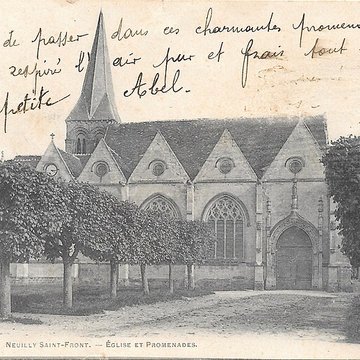 de passer dans ces charmantes promen
respiré l'air pur et frais tout
petite Abel.
NEUILLY SAINT-FRONT. — ÉGLISE ET PROMENADES.